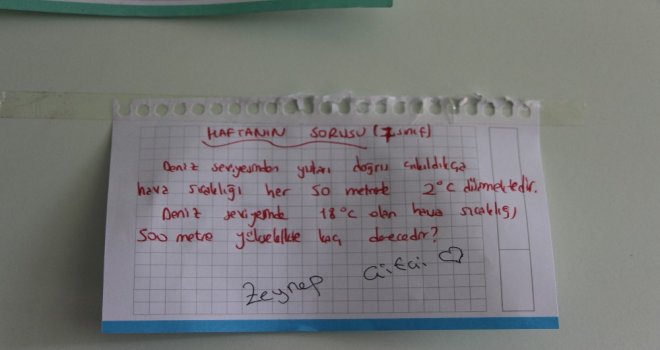 HAFTANIN SORUSU (7.sınıf)
Deniz seviyesinden yukarı doğru çıkıldıkça
hava sıcaklığı her 50 metrede 2°C düşmektedir.
Deniz seviyesinde 18°C olan hava sıcaklığı,
500 metre yükseklikte kaç derecedir?
Zeynep